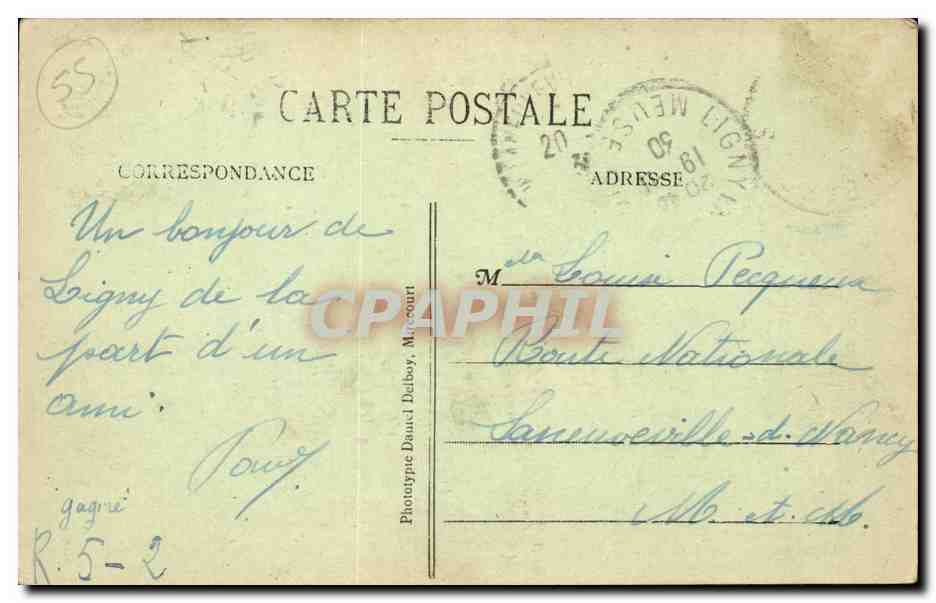 55
CARTE POSTALE
CORRESPONDANCE
ADRESSE
Un bonjour de
Ligny de la
part d'un
ami.
gagné
R. 5-2
Phototypie Daniel Delboy, Mirecourt
M
Louis Pecqueur
Route Nationale
Laneuveville-d-Nancy
M. et. M.
LIGNY
MEUSE
20
19
30
20
CPAPHIL